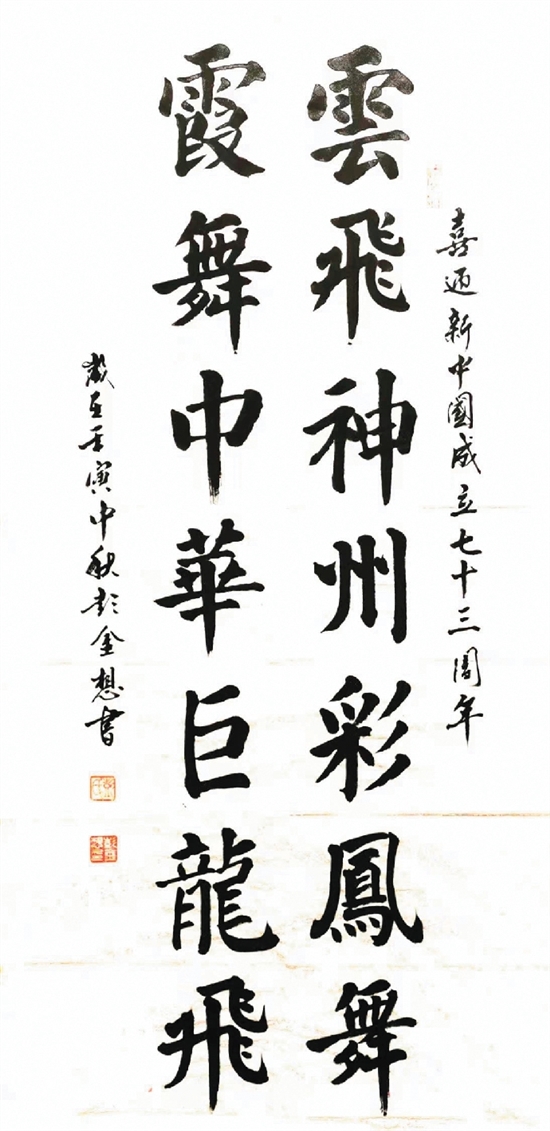 喜迎新中國成立七十三周年
雲飛神州彩鳳舞
霞舞中華巨龍飛
歲在壬寅中秋彭金想書